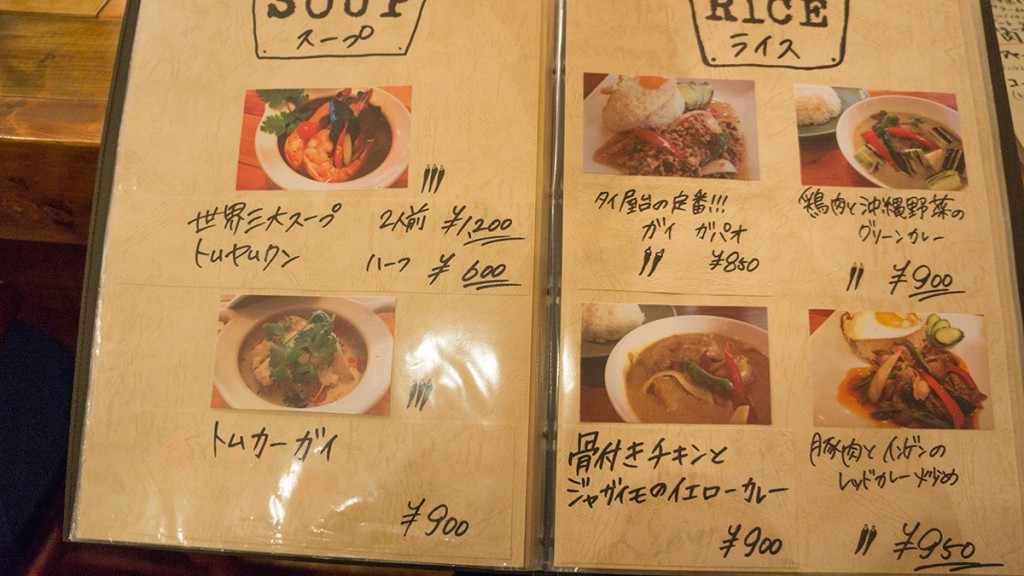 SOUP
スープ
世界三大スープ 2人前 ¥1,200
トムヤムクン ハーフ ¥600
トムカーガイ
¥900
RICE
ライス
タイ屋台の定番!!!
ガイ ガパオ
¥850
鶏肉と沖縄野菜の
グリーンカレー
¥900
骨付きチキンと
ジャガイモのイエローカレー
¥900
豚肉とインゲンの
レッドカレー炒め
¥950